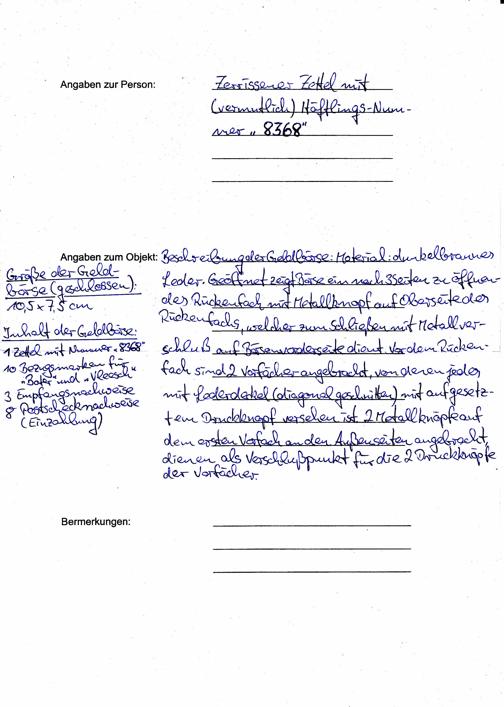 Angaben zur Person:
Zerrissener Zettel mit
(vermutlich) Häftlings-Num-
mer „8368"
Angaben zum Objekt:
Beschreibung der Geldbörse: Material: dunkelbraunes
Leder. Geöffnet zeigt Börse ein nach 3 Seiten zu öffnen-
des Rückenfach mit Metallknopf auf Oberseite des
Rückenfachs, welcher zum Schließen mit Metallver-
schluß auf Börsenvorderseite dient. Vor dem Rücken-
fach sind 2 Vorfächer angebracht, von denen jedes
mit Lederdeckel (diagonal geschnitten) mit aufgesetz-
tem Druckknopf versehen ist. 2 Metallknöpfe auf
dem ersten Vorfach an den Außenseiten angebracht,
dienen als Verschlußpunkt für die 2 Druckknöpfe
der Vorfächer.
Größe der Geld-
börse (geschlossen):
10,5 x 7,5 cm
Inhalt der Geldbörse:
1 Zettel mit Nummer „8368"
10 Bezugsmarken für
„Boter" und „Vleesch"
3 Empfangsnachweise
8 Postschecknachweise
(Einzahlung)
Bermerkungen: